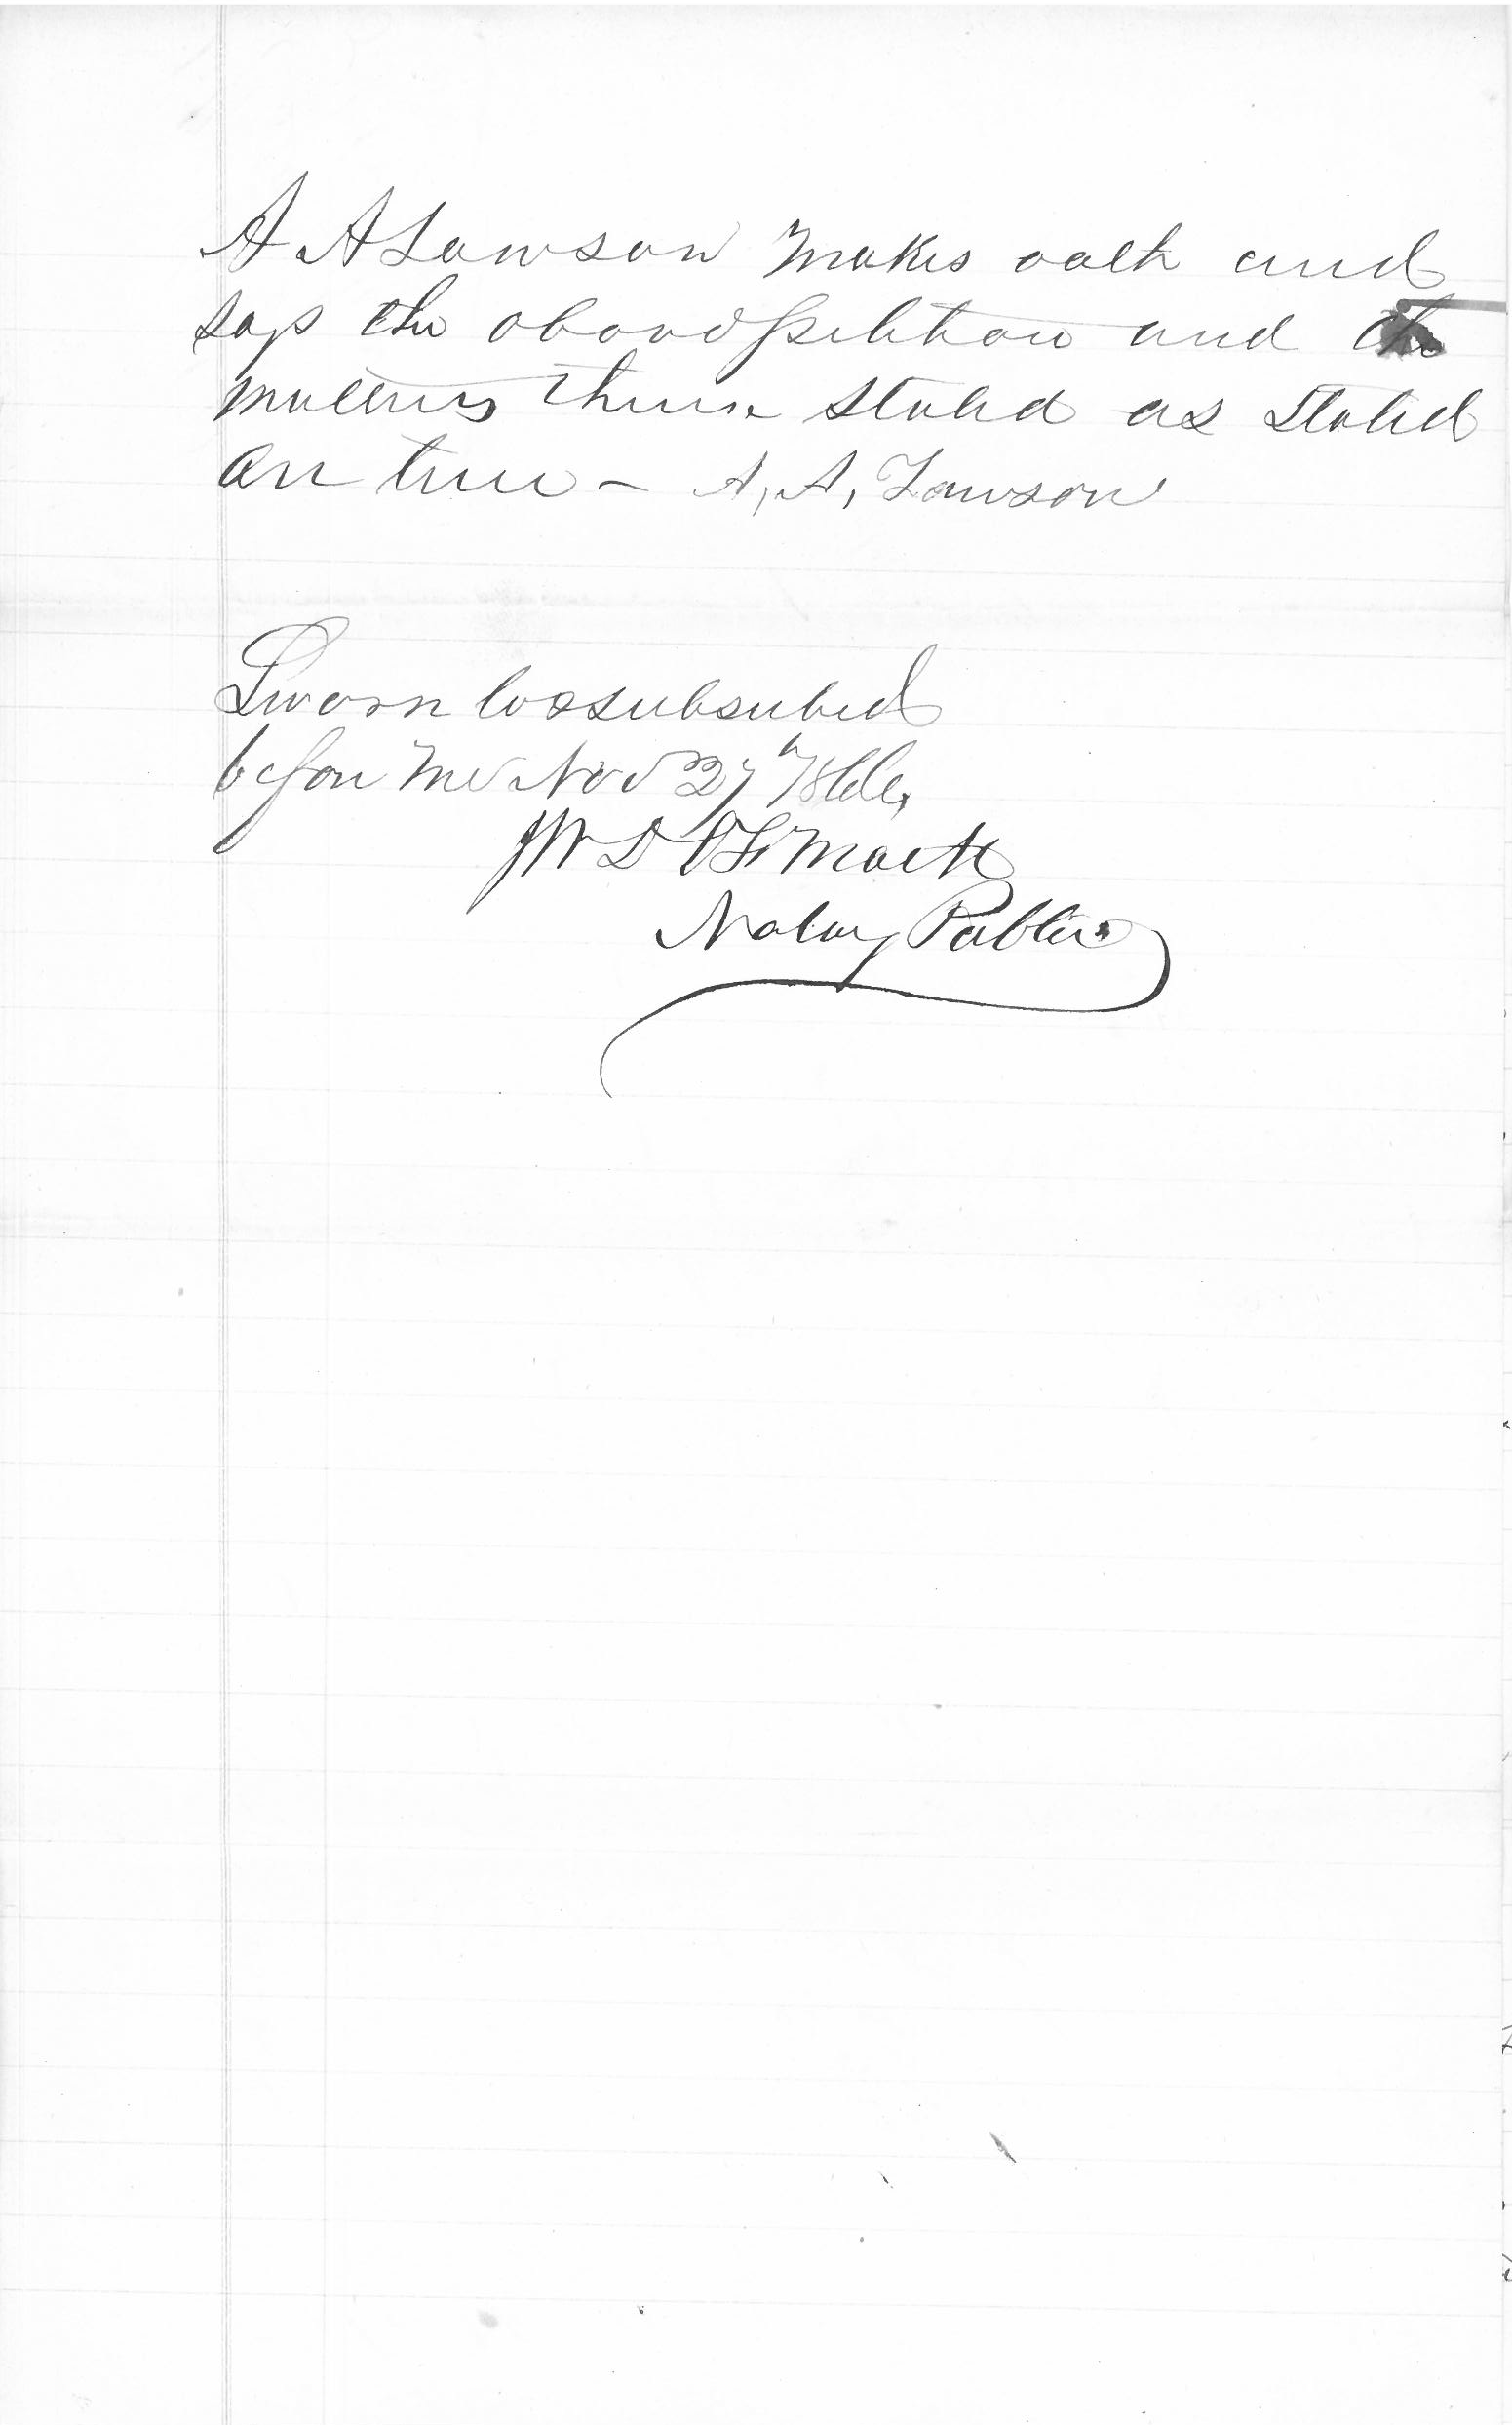 A A Lawson makes oath and
says the above petition and the
matters therein stated as stated
are true – A, A, Lawson
Sworn to & subscribed
before me Nov 27th
Notary Public